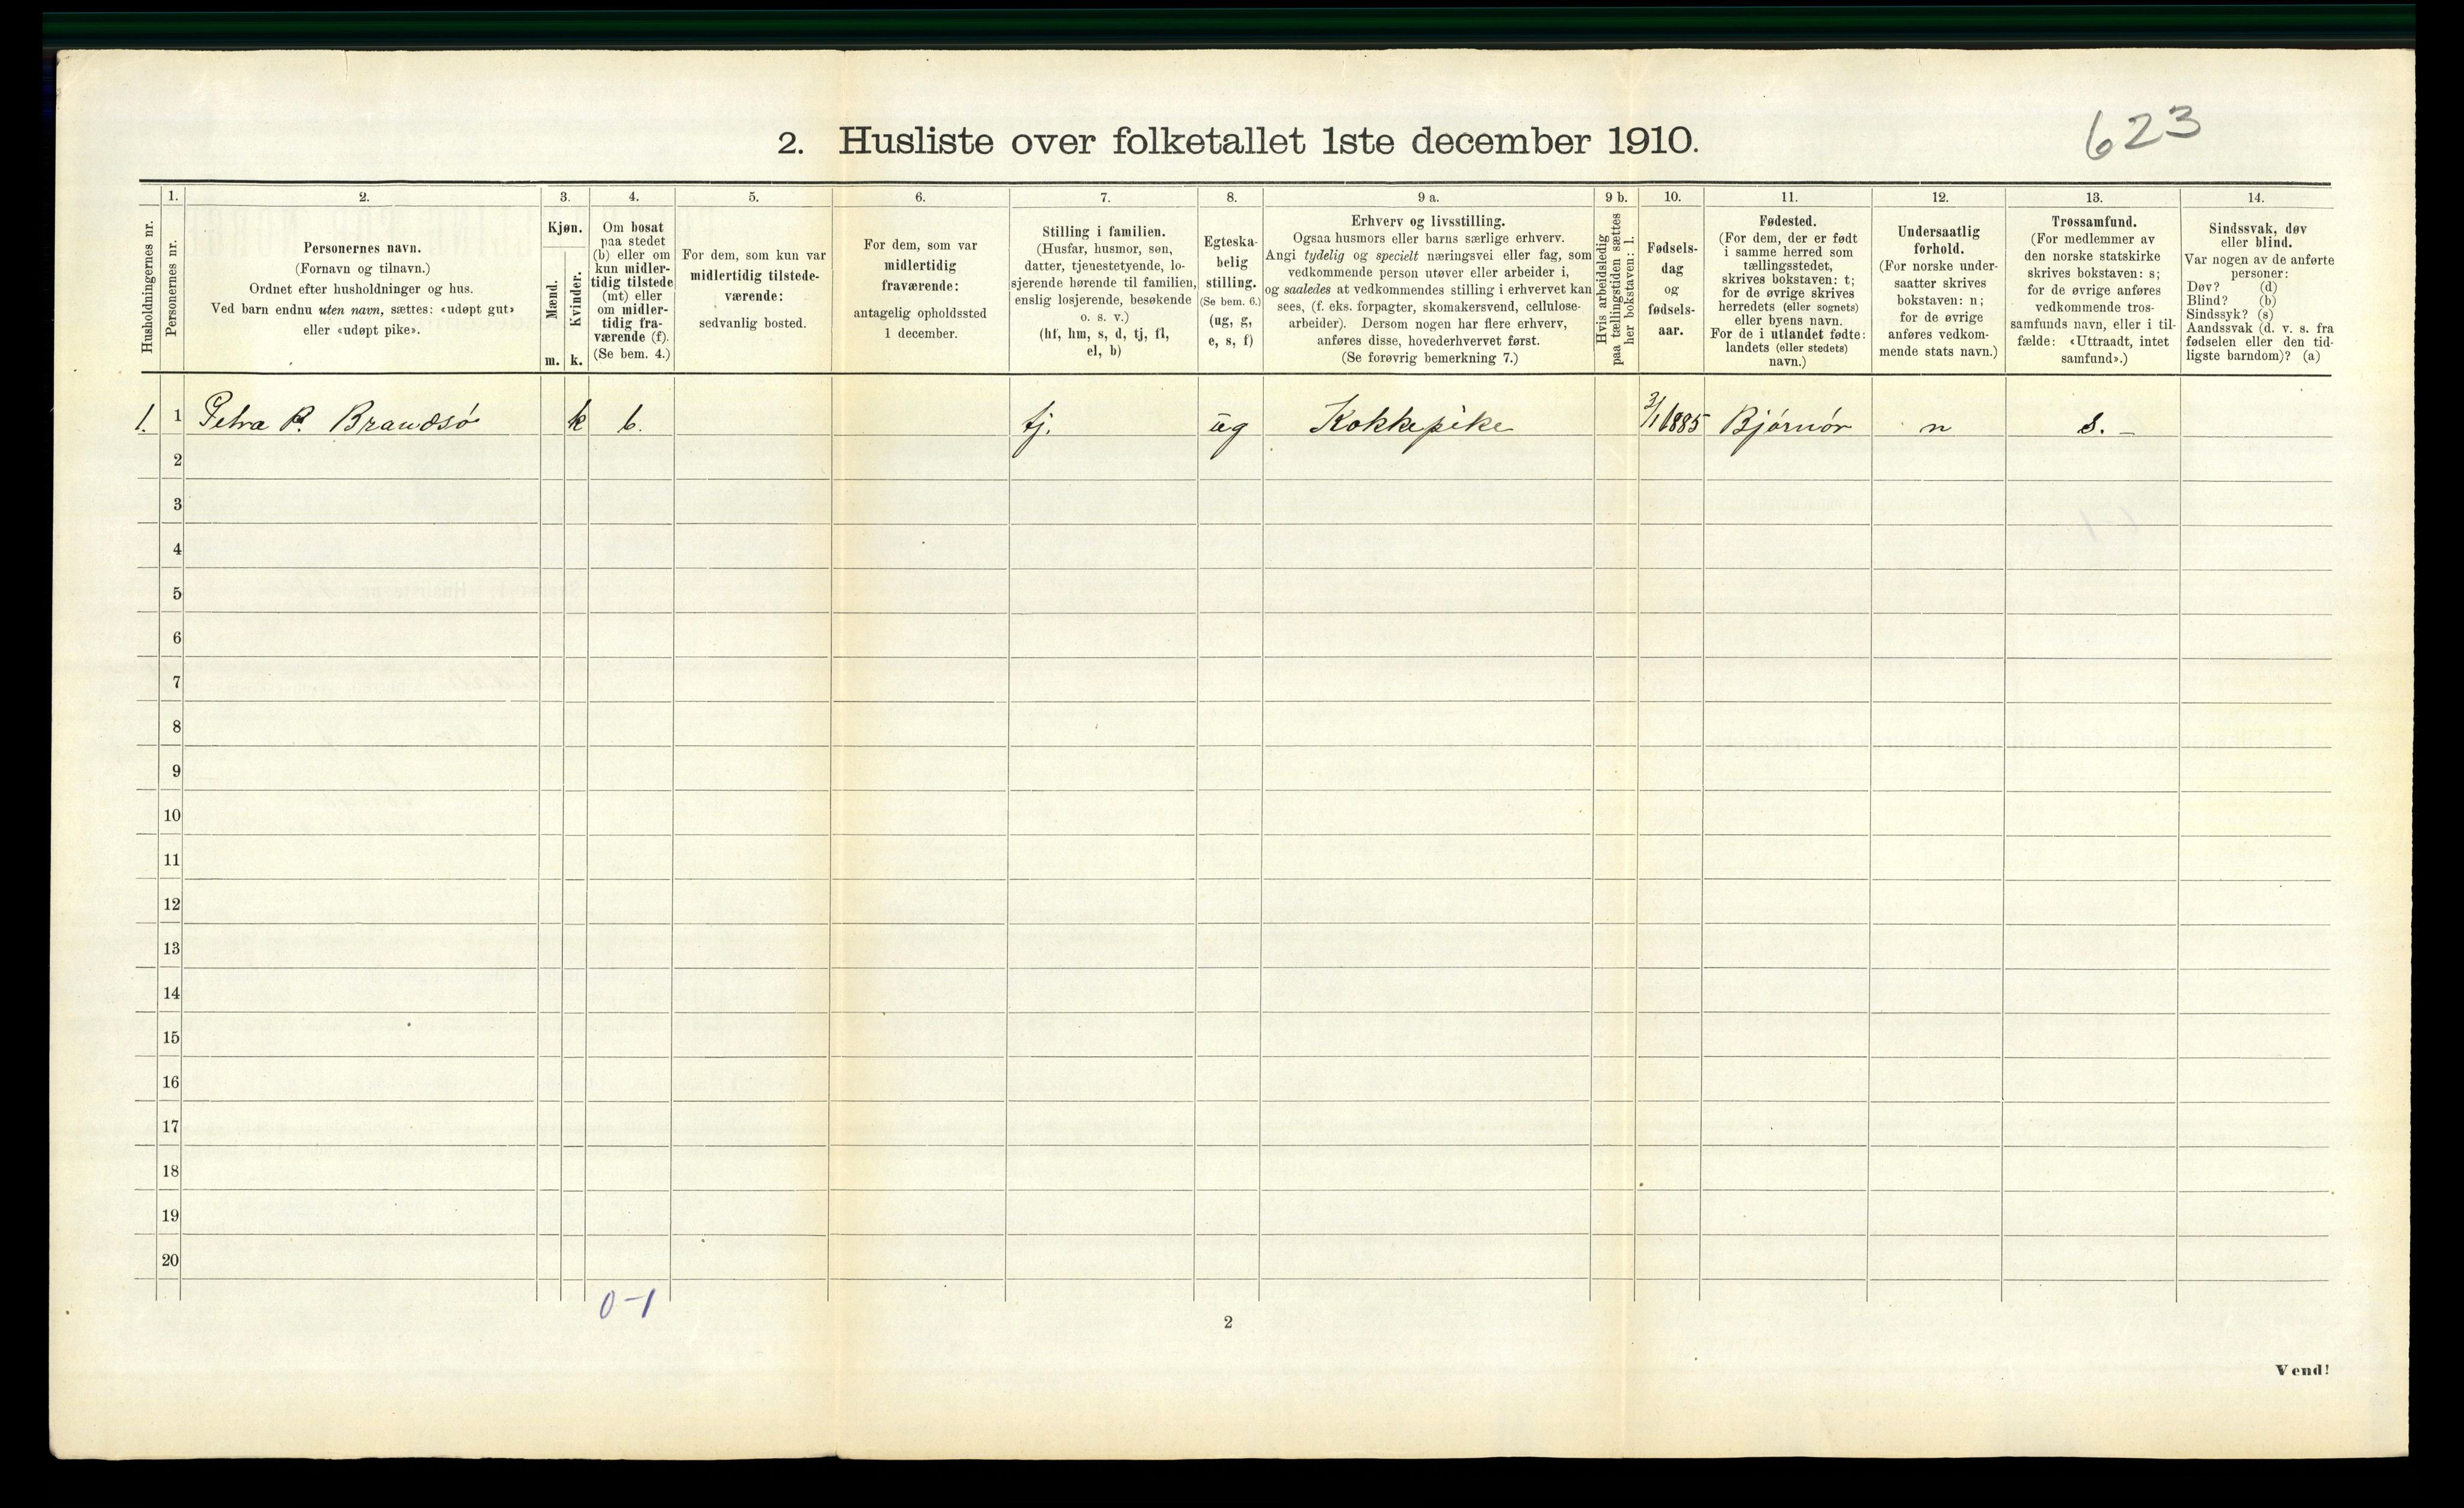 623
2. Husliste over folketallet 1ste december 1910.
Husholdningernes nr.
1.
Personernes nr.
2.
Personernes navn.
(Fornavn og tilnavn.)
Ordnet efter husholdninger og hus.
Ved barn endnu uten navn, sættes: «udøpt gut»
eller «udøpt pike».
3.
Kjøn.
Mænd.
Kvinder.
m. k.
4.
Om bosat
paa stedet
(b) eller om
kun midler-
tidig tilstede
(mt) eller
om midler-
tidig fra-
værende (f).
(Se bem. 4.)
5.
For dem, som kun var
midlertidig tilstede-
værende:
sedvanlig bosted.
6.
For dem, som var
midlertidig
fraværende:
antagelig opholdssted
1 december.
7.
Stilling i familien.
(Husfar, husmor, søn,
datter, tjenestetyende, lo-
sjerende hørende til familien,
enslig losjerende, besøkende
o. s. v.)
(hf, hm, s, d, tj, fl,
el, b)
8.
Egteska-
belig
stilling.
(Se bem. 6.)
(ug, g,
e, s, f)
9 a.
Erhverv og livsstilling.
Ogsaa husmors eller barns særlige erhverv.
Angi tydelig og specielt næringsvei eller fag, som
vedkommende person utøver eller arbeider i,
og saaledes at vedkommendes stilling i erhvervet kan
sees, (f. eks. forpagter, skomakersvend, cellulose-
arbeider). Dersom nogen har flere erhverv,
anføres disse, hovederhvervet først.
(Se forøvrig bemerkning 7.)
9 b.
Hvis arbeidsledig
paa tællingstiden sættes
her bokstaven: l.
10.
Fødsels-
dag
og
fødsels-
aar.
11.
Fødested.
(For dem, der er født
i samme herred som
tællingsstedet,
skrives bokstaven: t;
for de øvrige skrives
herredets (eller sognets)
eller byens navn.
For de i utlandet fødte:
landets (eller stedets)
navn.)
12.
Undersaatlig
forhold.
(For norske under-
saatter skrives
bokstaven: n;
for de øvrige
anføres vedkom-
mende stats navn.)
13.
Trossamfund.
(For medlemmer av
den norske statskirke
skrives bokstaven: s;
for de øvrige anføres
vedkommende tros-
samfunds navn, eller i til-
fælde: «Uttraadt, intet
samfund».)
14.
Sindssvak, døv
eller blind.
Var nogen av de anførte
personer:
Døv? (d)
Blind? (b)
Sindssyk? (s)
Aandssvak (d. v. s. fra
fødselen eller den tid-
ligste barndom)? (a)
1. 1 Petra P. Brandsø k b. tj. ug Kokkepike 3/1 1885 Bjørnør n s. -
2
3
4
5
6
7
8
9
10
11
12
13
14
15
16
17
18
19
20
0-1
2
Vend!